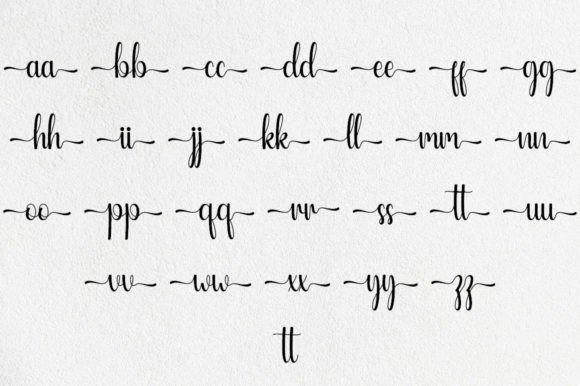 aa bb cc dd ee ff gg
hh ii jj kk ll mm nn
oo pp qq rr ss tt uu
vv ww xx yy zz
tt